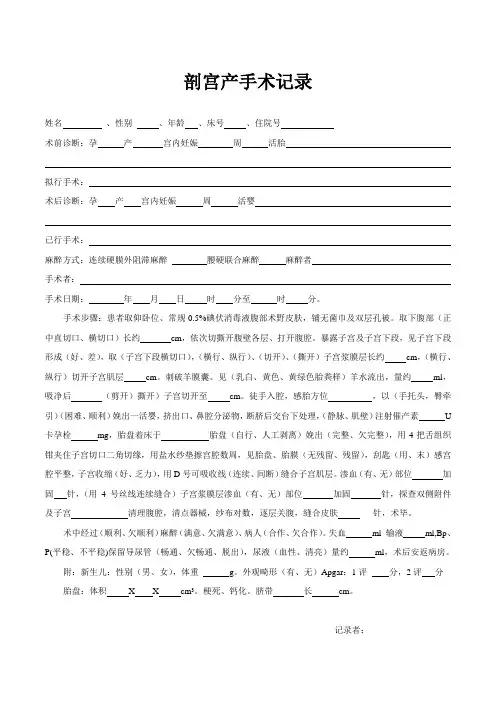 剖宫产手术记录
姓名________ 、性别_____ 、年龄___、床号_____、住院号____________
术前诊断：孕______产_______宫内妊娠________周______活胎______
拟行手术：______
术后诊断：孕____产____宫内妊娠______周______活婴______
已行手术：______
麻醉方式：连续硬膜外阻滞麻醉________腰硬联合麻醉______麻醉者______
手术者：______
手术日期：________年____月____日____时____分至______时____分。
手术步骤：患者取仰卧位、常规0.5%碘伏消毒液腹部术野皮肤，铺无菌巾及双层孔被。取下腹部（正
中直切口、横切口）长约______cm，依次切撕开腹壁各层、打开腹腔。暴露子宫及子宫下段，见子宫下段
形成（好、差），取（子宫下段横切口），（横行、纵行）、（切开）、（撕开）子宫浆膜层长约_____cm，（横行、
纵行）切开子宫肌层_____cm。刺破羊膜囊。见（乳白、黄色、黄绿色胎粪样）羊水流出，量约_____ml，
吸净后______（剪开）撕开）子宫切开至_____cm。徒手入腔，感胎方位________，以（手托头，臀牵
引）（困难、顺利）娩出一活婴，挤出口、鼻腔分泌物，断脐后交台下处理，（静脉、肌壁）注射催产素_____U
卡孕栓_____mg，胎盘着床于________胎盘（自行、人工剥离）娩出（完整、欠完整），用4把舌组织
钳夹住子宫切口二角切缘，用盐水纱垫擦宫腔数周，见胎盘、胎膜（无残留、残留），刮匙（用、未）感宫
腔平整，子宫收缩（好、乏力），用D号可吸收线（连续、间断）缝合子宫肌层。渗血（有、无）部位______加
固____针，（用 4 号丝线连续缝合）子宫浆膜层渗血（有、无）部位______加固______针，探查双侧附件
及子宫____________清理腹腔，清点器械，纱布对数，逐层关腹，缝合皮肤____针，术毕。
术中经过（顺利、欠顺利）麻醉（满意、欠满意）、病人（合作、欠合作）。失血_____ml 输液_____ml,Bp、
P(平稳、不平稳)保留导尿管（畅通、欠畅通、脱出），尿液（血性、清亮）量约_____ml，术后安返病房。
附：新生儿：性别（男、女），体重______g。外观畸形（有、无）Apgar：1评___分，2评___分
胎盘：体积_____X____X_____cm³。梗死、钙化。脐带_______长_____cm。
记录者：